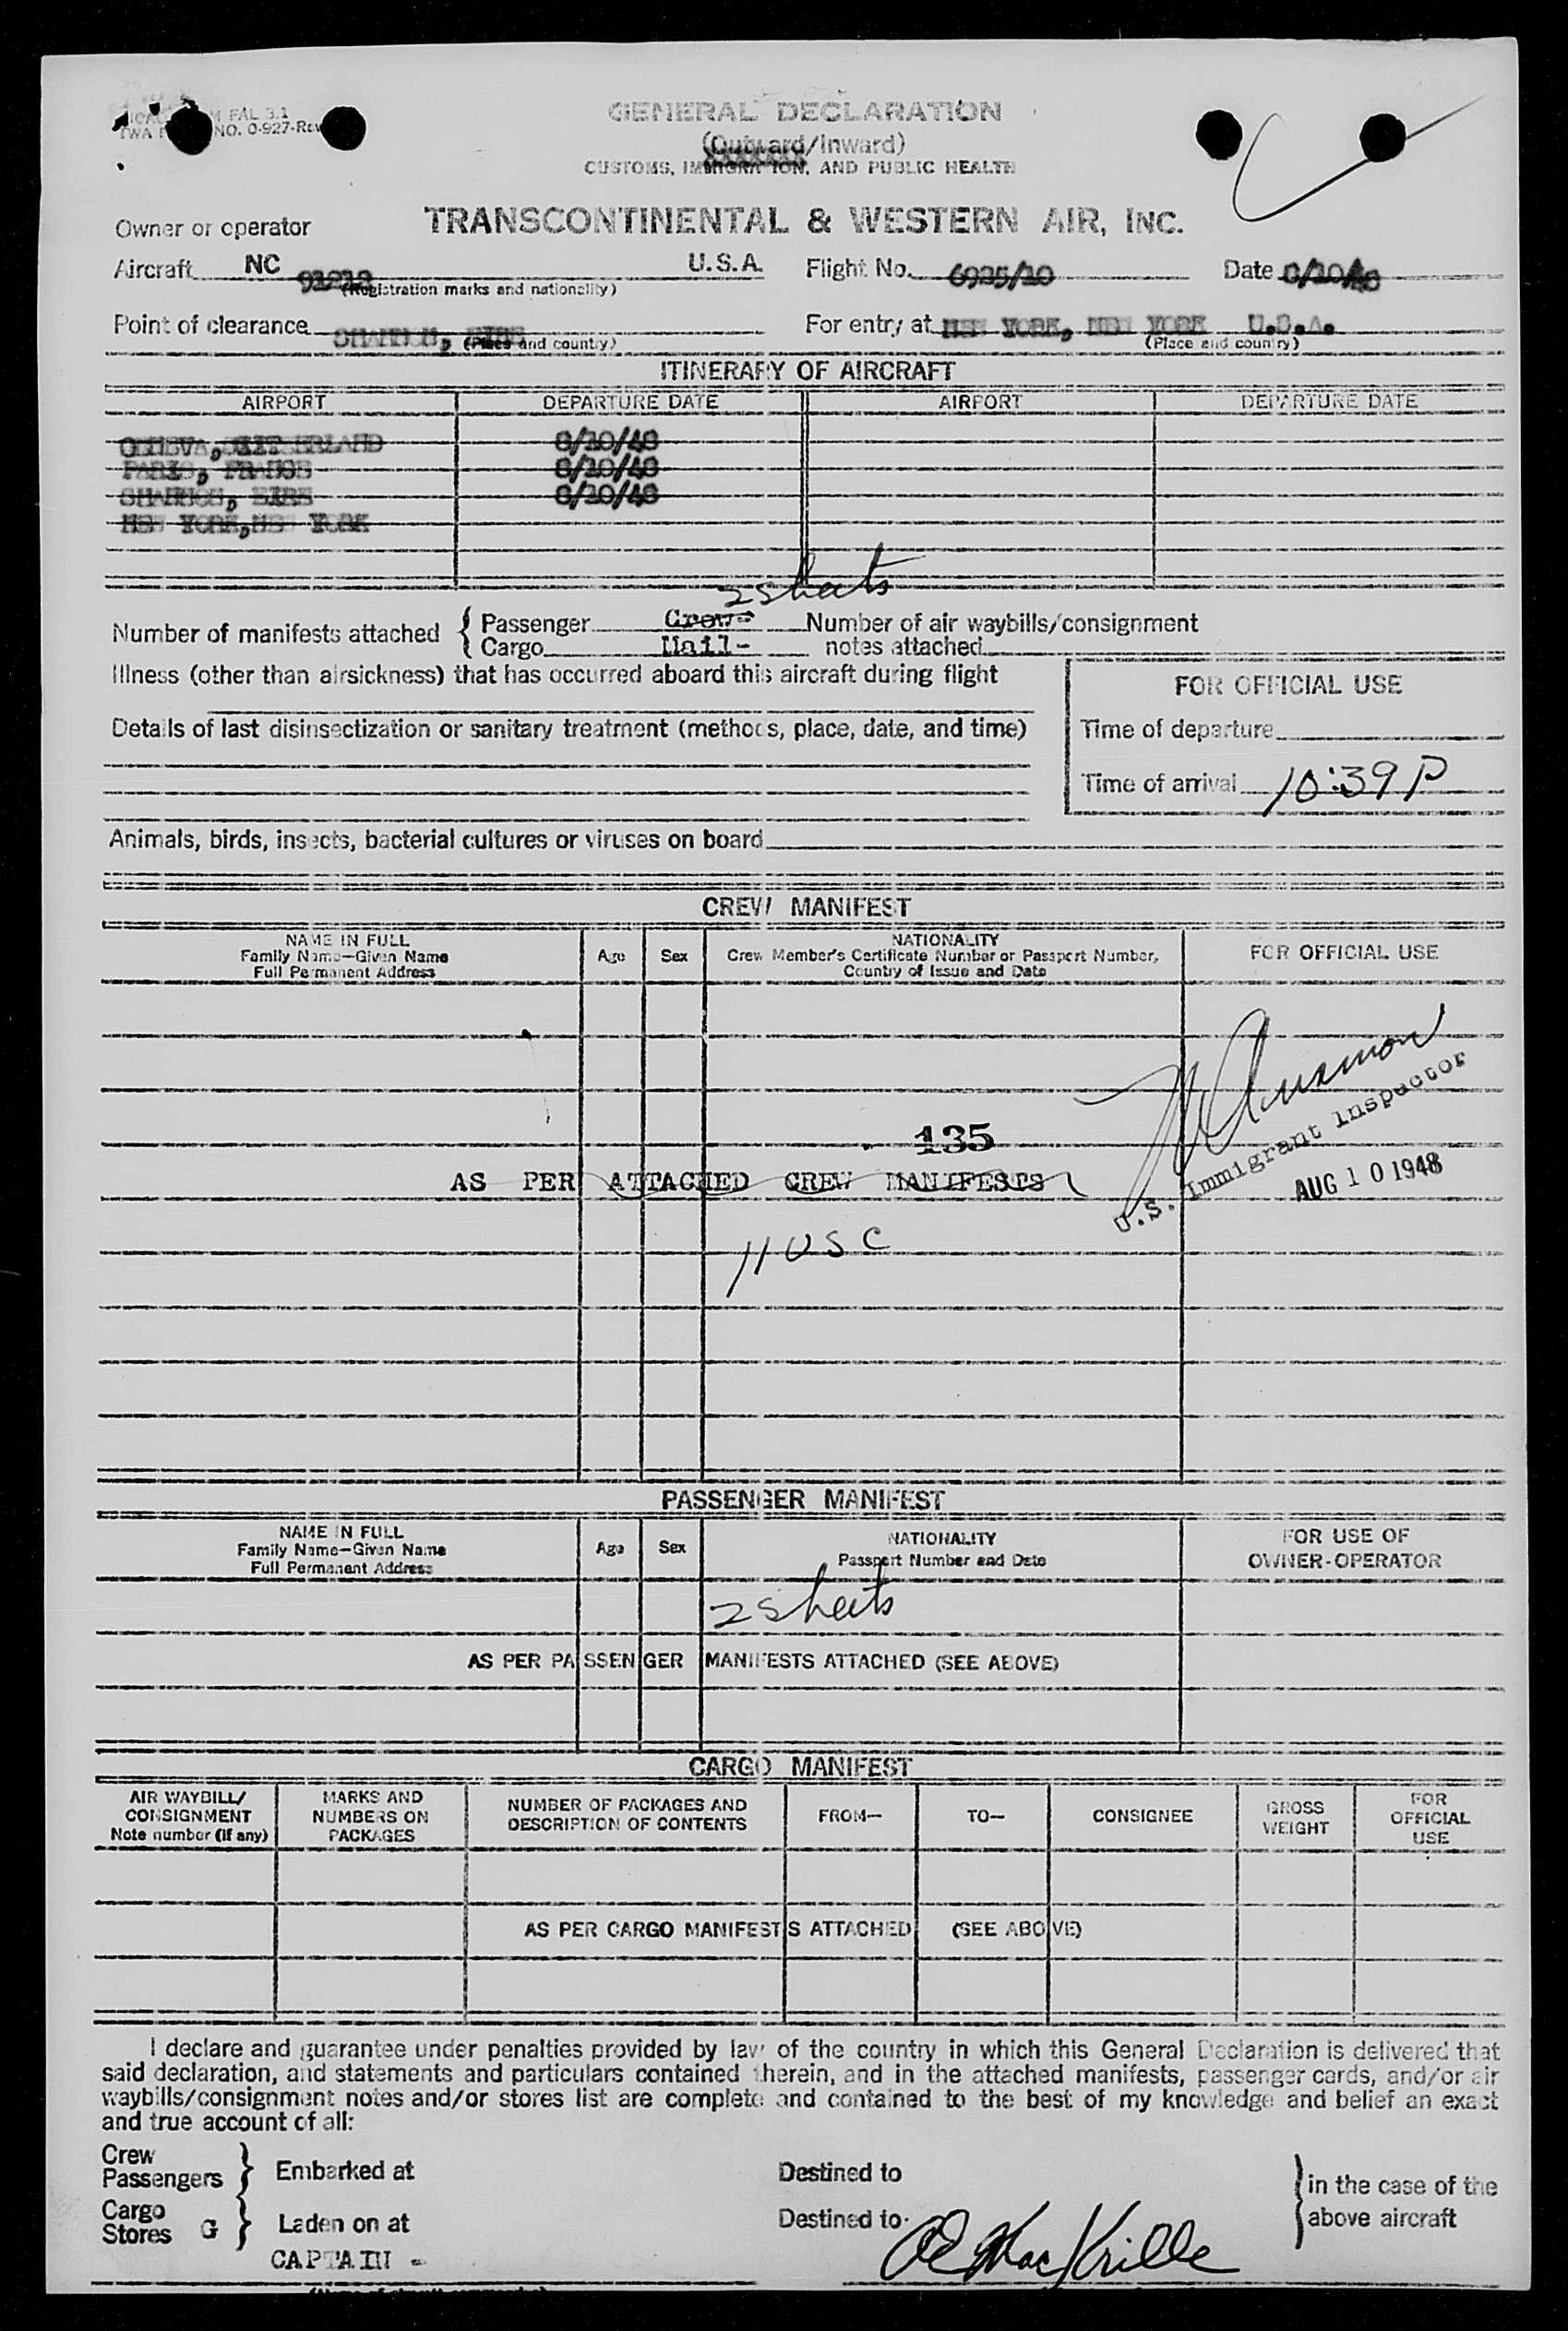 FAL 3.1
NO. 0-927-Rev
GENERAL DECLARATION
(Outward/Inward)
CUSTOMS, IMMIGRATION, AND PUBLIC HEALTH
Owner or operator TRANSCONTINENTAL & WESTERN AIR, INC.
Aircraft NC U.S.A. Flight No. Date
(Registration marks and nationality)
Point of clearance SHANNON, EIRE For entry at NEW YORK, NEW YORK U.S.A.
(Place and country) (Place and country)
ITINERARY OF AIRCRAFT
AIRPORT DEPARTURE DATE AIRPORT DEPARTURE DATE
GENEVA, SWITZERLAND 8/10/48
PARIS, FRANCE 8/10/48
SHANNON, EIRE 8/10/48
NEW YORK, NEW YORK
2 sheets
Number of manifests attached { Passenger Crew- Number of air waybills/consignment
{ Cargo Mail- notes attached
Illness (other than airsickness) that has occurred aboard this aircraft during flight
FOR OFFICIAL USE
Details of last disinsectization or sanitary treatment (methods, place, date, and time)
Time of departure
Time of arrival 10:39 P
Animals, birds, insects, bacterial cultures or viruses on board
CREW MANIFEST
NAME IN FULL
Family Name—Given Name
Full Permanent Address
Age
Sex
NATIONALITY
Crew Member's Certificate Number or Passport Number,
Country of Issue and Date
FOR OFFICIAL USE
135
AS PER ATTACHED CREW MANIFESTS
U.S. Immigrant Inspector
AUG 10 1948
11 USC
PASSENGER MANIFEST
NAME IN FULL
Family Name—Given Name
Full Permanent Address
Age
Sex
NATIONALITY
Passport Number and Date
FOR USE OF
OWNER-OPERATOR
2 sheets
AS PER PASSENGER MANIFESTS ATTACHED (SEE ABOVE)
CARGO MANIFEST
AIR WAYBILL/
CONSIGNMENT
Note number (if any)
MARKS AND
NUMBERS ON
PACKAGES
NUMBER OF PACKAGES AND
DESCRIPTION OF CONTENTS
FROM—
TO—
CONSIGNEE
GROSS
WEIGHT
FOR
OFFICIAL
USE
AS PER CARGO MANIFESTS ATTACHED (SEE ABOVE)
I declare and guarantee under penalties provided by law of the country in which this General Declaration is delivered that
said declaration, and statements and particulars contained therein, and in the attached manifests, passenger cards, and/or air
waybills/consignment notes and/or stores list are complete and contained to the best of my knowledge and belief an exact
and true account of all:
Crew
Passengers } Embarked at Destined to } in the case of the
Cargo
Stores G } Laden on at Destined to } above aircraft
CAPTAIN -